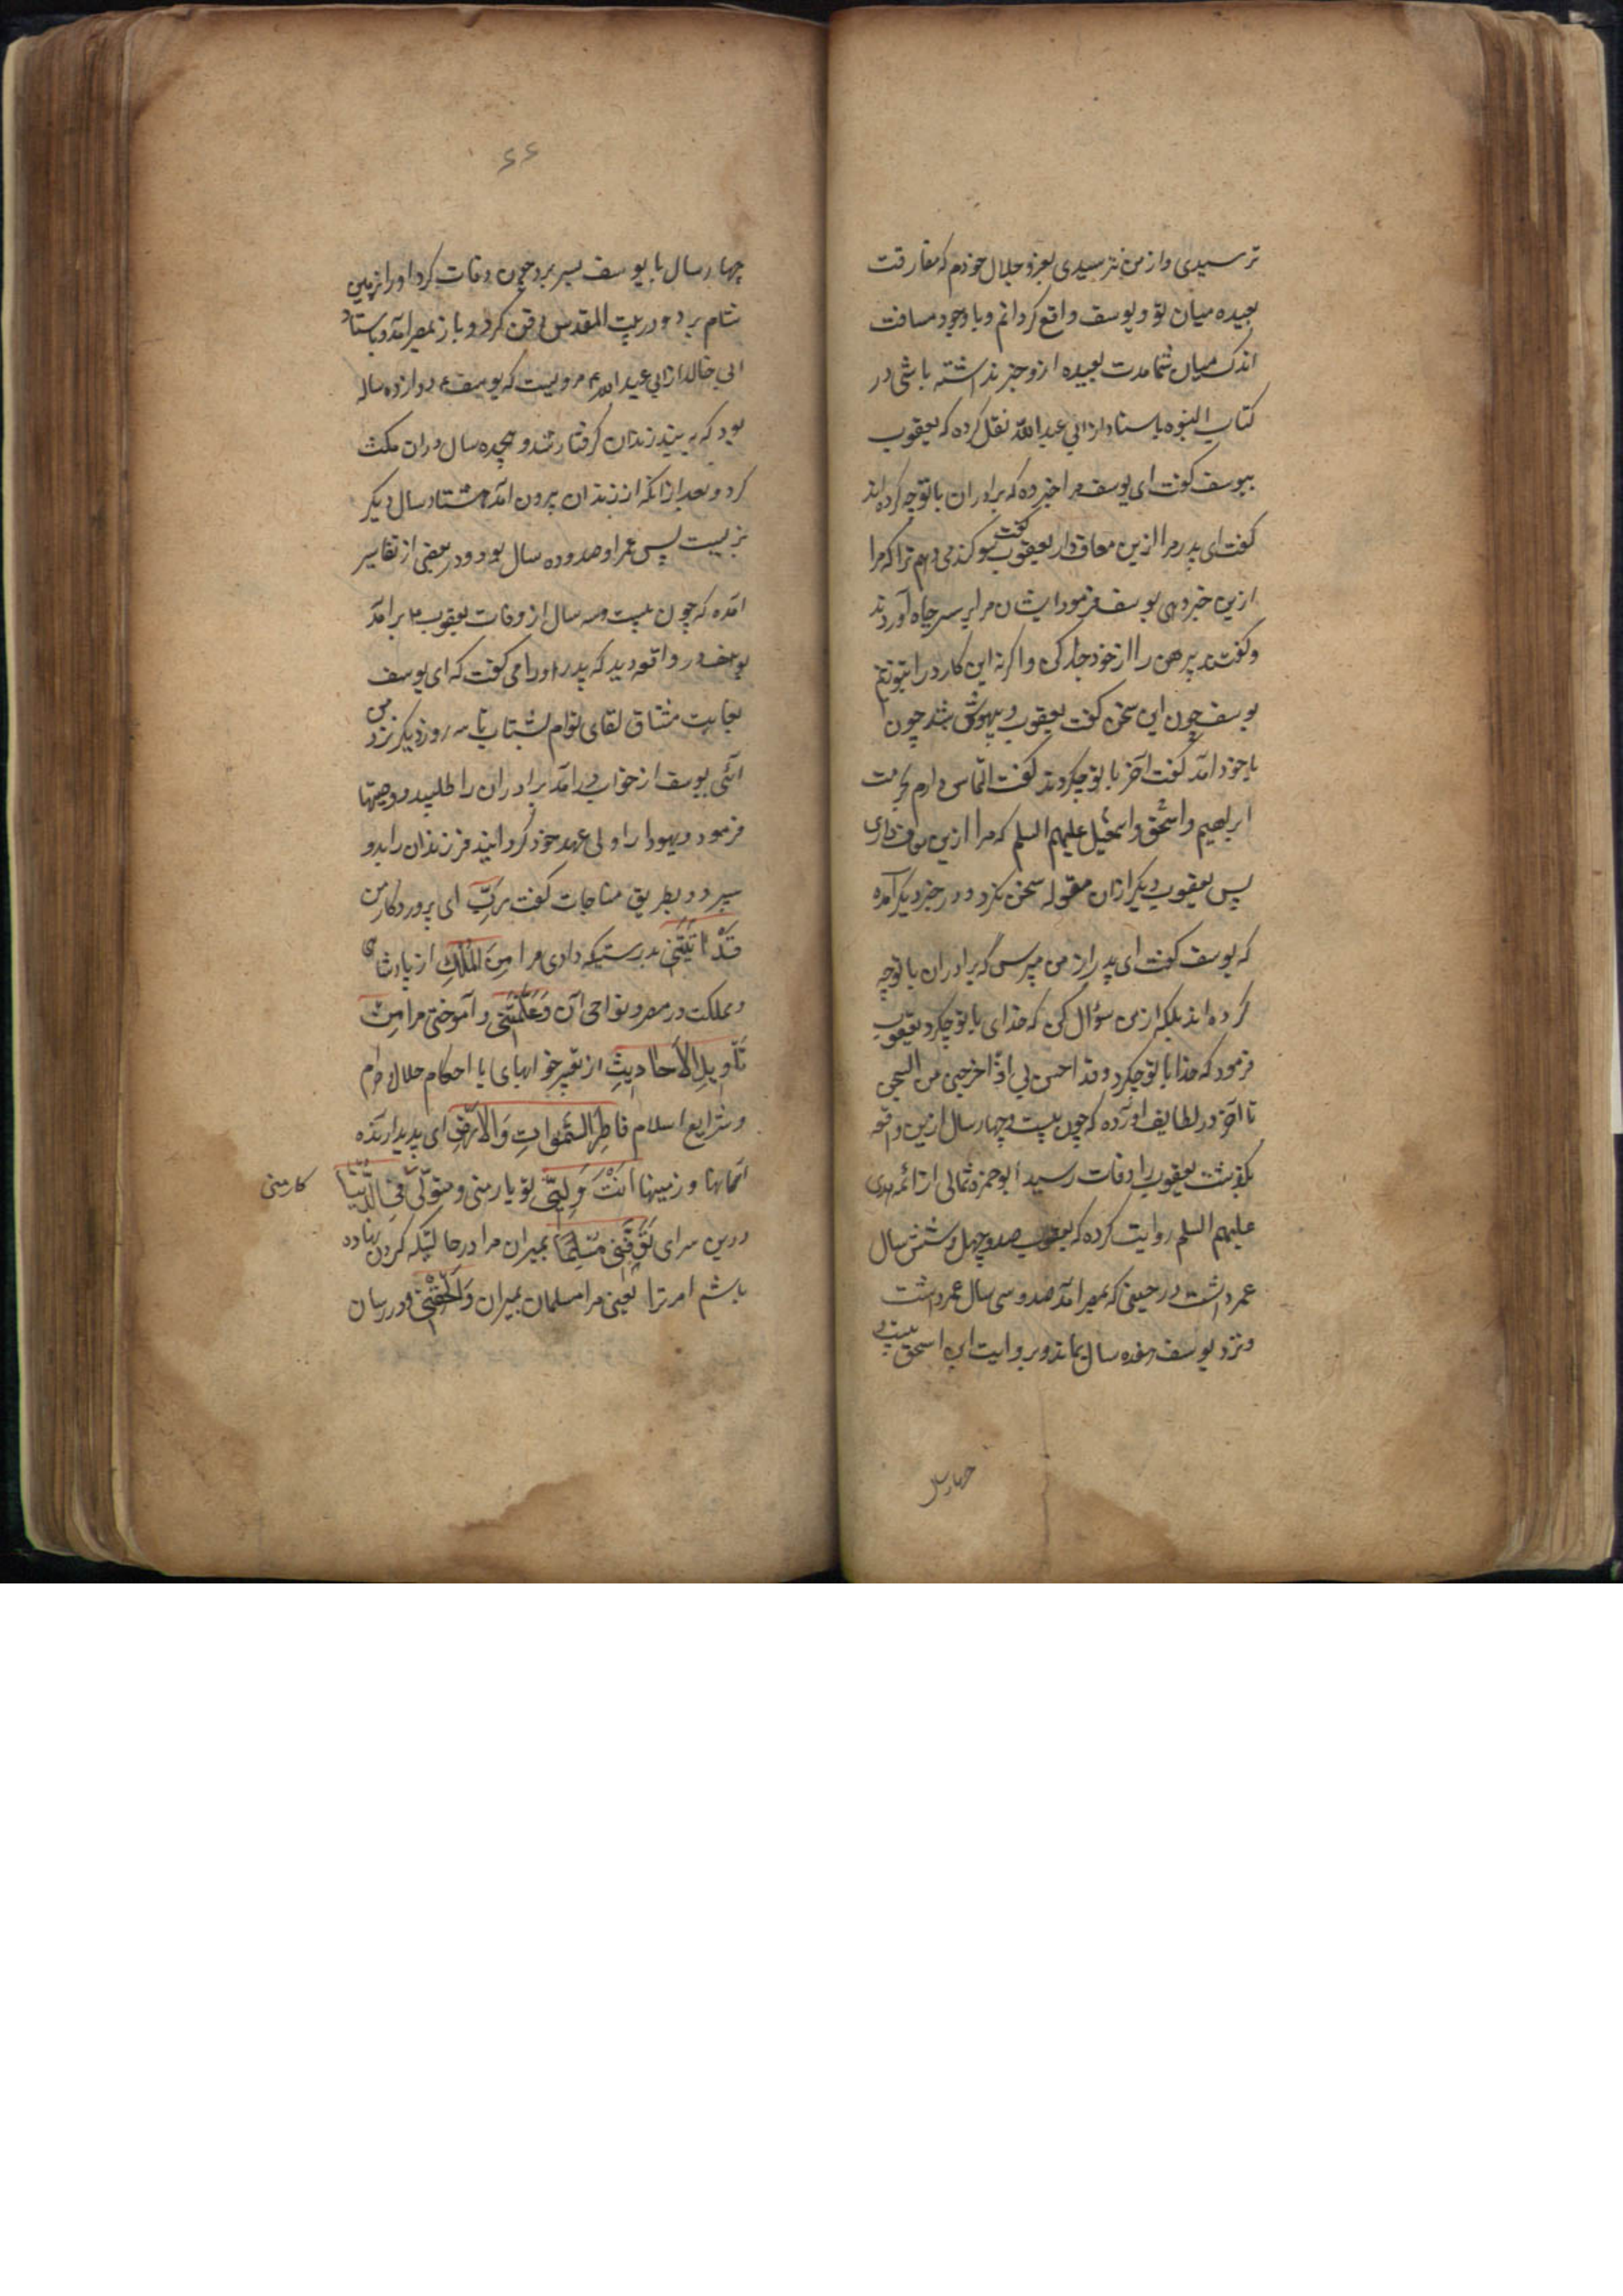 ترسیدی و از من نترسیدی بعز و جلال خودم که مفارقت
بعیده میان تو و یوسف واقع گردانم و با وجود مسافت
اندک میان شما مدت بعیده ازو خبر نداشته باشی در
کتاب النبوه باسناد از ابی عبد الله نقل کرده که یعقوب
بیوسف گفت ای یوسف مرا خبر ده که برادران با تو چه کرده‌اند
گفت ای پدر مرا ازین معاف دار یعقوب گفت سوگند می‌دهم ترا که مرا
ازین خبر دهی یوسف فرمود ایشان مرا بر سر چاه آوردند
و گفتند پیرهن را از خود جدا کن و اگر نه این کار در
یوسف چون این سخن گفت یعقوب بیهوش شد چون
با خود آمد گفت آخر با تو چکردند گفت التماس دارم بحرمت
ابراهیم و اسحق و اسمعیل علیهم السلم که مرا ازین معاف داری
پس یعقوب دیگر ازان مقوله سخن نکرد و در خبر دیگر آمده
که یوسف گفت ای پدر از من مپرس که برادران با تو چه
کرده‌اند بلکه از من سؤال کن که خدای با تو چکرد یعقوب
فرمود که خدا با تو چکرد و قد احسن بی اذ اخرجنی من السجن
تا آخر در لطایف آورده که چون بیست و چهار سال ازین واقعه
بگذشت یعقوب را وفات رسید ابو حمزه ثمالی از ائمه هدی
علیهم السلم روایت کرده که یعقوب صد و چهل و شش سال
عمر داشت در حینی که بمصر آمد صد و سی سال عمر داشت
و نزد یوسف هفده سال بماند و بروایت ابن اسحق بیست و
چهار سال
۶۶
چهار سال با یوسف بسر برد چون وفات کرد او را بزمین
شام برد و در بیت المقدس دفن کرد و باز بمصر آمد و باسناد
ابی خالد از ابی عبد الله ع مرویست که یوسف ع دوازده ساله
بود که به بند زندان گرفتار شد و هیجده سال دران مکث
کرد و بعد از آنکه از زندان بیرون آمد هشتاد سال دیگر
بزیست پس عمر او صد و ده سال بود و در بعضی از تفاسیر
آمده که چون بیست و سه سال از وفات یعقوب ع برآمد
یوسف در واقعه دید که پدر او را می گفت که ای یوسف
بغایت مشتاق لقای توام بشتاب تا سه روز دیگر نزد من
آئی یوسف از خواب درآمد برادران را طلبید و وصیتها
فرمود و یهودا را ولی عهد خود گردانید فرزندان را بدو
سپرد و بطریق مناجات گفت رَبِّ ای پروردگار من
قَدْ اٰتَیْتَنِی بدرستیکه دادی مرا مِنَ الْمُلْکِ از پادشاهی
و مملکت در مصر و نواحی آن وَعَلَّمْتَنِی و آموختی مرا مِنْ
تَأْوِیلِ الْاَحَادِیثِ از تعبیر خوابهای یا احکام حلال و حرام
و شرایع اسلام فَاطِرَ السَّمٰوَاتِ وَالْاَرْضِ ای پدید آرنده
آسمانها و زمینها اَنْتَ وَلِیّٖ تو یار منی و متولّی فِی الدُّنْیَا
کار منی
درین سرای تَوَفَّنِی مُسْلِمًا بمیران مرا در حالتیکه گردن نهاده
باشم امر ترا یعنی مرا مسلمان بمیران وَاَلْحِقْنِی و در رسان